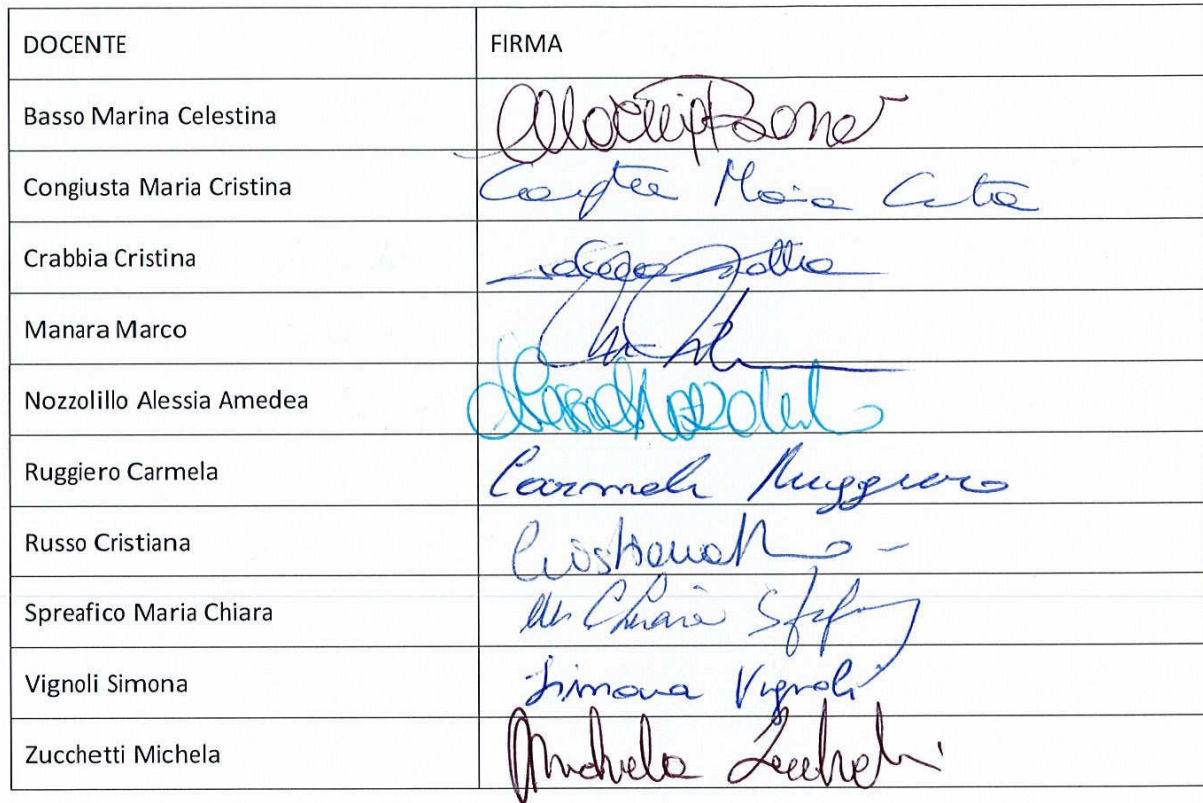 DOCENTE FIRMA
Basso Marina Celestina
Congiusta Maria Cristina Maria
Crabbia Cristina
Manara Marco
Nozzolillo Alessia Amedea
Ruggiero Carmela Carmela Ruggiero
Russo Cristiana Cristiana
Spreafico Maria Chiara Chiara
Vignoli Simona Simona Vignoli
Zucchetti Michela Michela Zucchetti